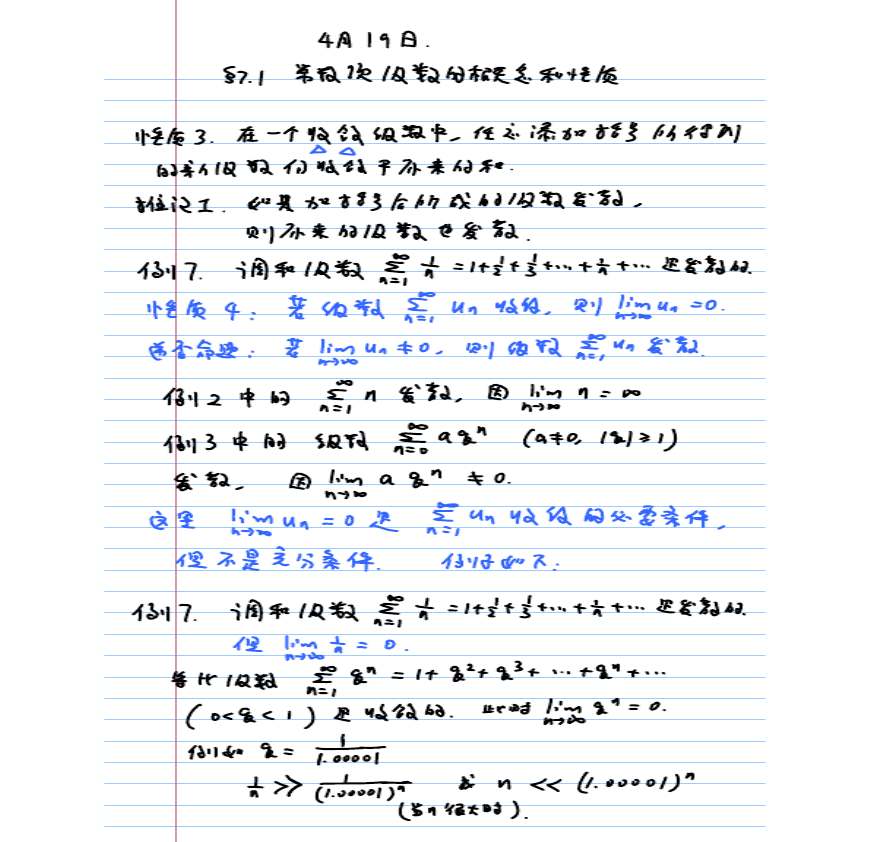 4月19日.
§7.1 常数项级数的概念和性质
性质3. 在一个收敛级数中, 任意添加括号所得到
的新级数仍收敛于原来的和.
推论1. 如果加括号后所成的级数发散,
则原来的级数也发散.
例7. 调和级数 \sum_{n=1}^{∞} 1/n = 1+1/2+1/3+⋯+1/n+⋯ 是发散的.
性质4: 若级数 \sum_{n=1}^{∞} un 收敛, 则 lim_{n→∞} un = 0.
逆否命题: 若 lim_{n→∞} un ≠ 0, 则级数 \sum_{n=1}^{∞} un 发散.
例2中的 \sum_{n=1}^{∞} n 发散, 因 lim_{n→∞} n = ∞
例3中的 级数 \sum_{n=0}^{∞} a q^n (a≠0, |q|≥1)
发散, 因 lim_{n→∞} a q^n ≠ 0.
这里 lim_{n→∞} un = 0 是 \sum_{n=1}^{∞} un 收敛的必要条件,
但不是充分条件. 例子如下:
例7. 调和级数 \sum_{n=1}^{∞} 1/n = 1+1/2+1/3+⋯+1/n+⋯ 是发散的.
但 lim_{n→∞} 1/n = 0.
等比级数 \sum_{n=1}^{∞} q^n = 1+q^2+q^3+⋯+q^n+⋯
(0<q<1) 是收敛的. 此时 lim_{n→∞} q^n = 0.
例如 q = 1/1.00001
1/n >> 1/(1.00001)^n 或 n << (1.00001)^n
(当n很大时).